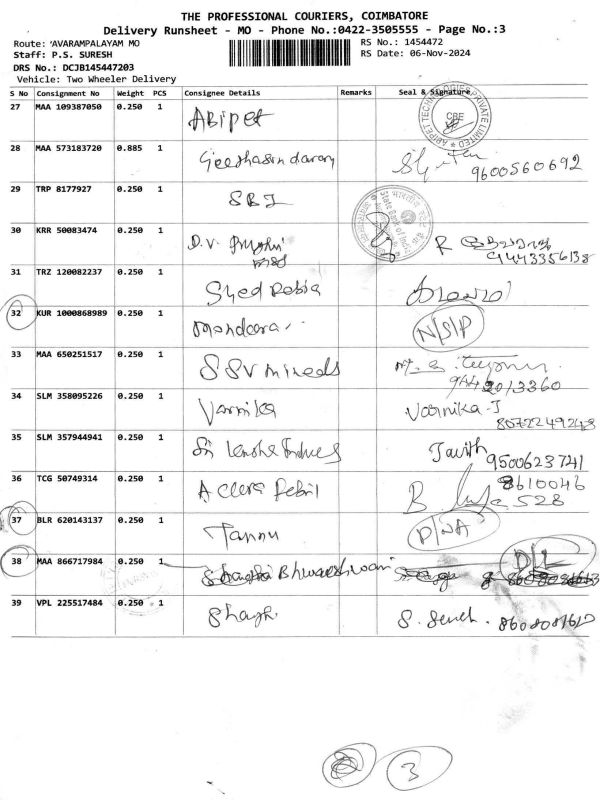 THE PROFESSIONAL COURIERS, COIMBATORE
Delivery Runsheet - MO - Phone No.:0422-3505555 - Page No.:3
Route: 'AVARAMPALAYAM MO
RS No.: 1454472
Staff: P.S. SURESH
RS Date: 06-Nov-2024
DRS No.: DCJB145447203
Vehicle: Two Wheeler Delivery
S No Consignment No Weight PCS Consignee Details Remarks Seal & Signature
27 MAA 109387050 0.250 1 Abipet CBE
28 MAA 573183720 0.885 1 9600560692
29 TRP 8177927 0.250 1 SBI
State Bank of India
30 KRR 50083474 0.250 1 D.V. R
9443356138
31 TRZ 120082237 0.250 1 Syed Rabia
32 KUR 1000868989 0.250 1 Mandara N/S/P
33 MAA 650251517 0.250 1 SSV
34 SLM 358095226 0.250 1 Varnika Varnika-J
8072249248
35 SLM 357944941 0.250 1 Sri
9500623741
36 TCG 50749314 0.250 1 A B 8610046
528
37 BLR 620143137 0.250 1 Tannu D/NA
38 MAA 866717984 0.250 1 D/L
39 VPL 225517484 0.250 1 S.
3